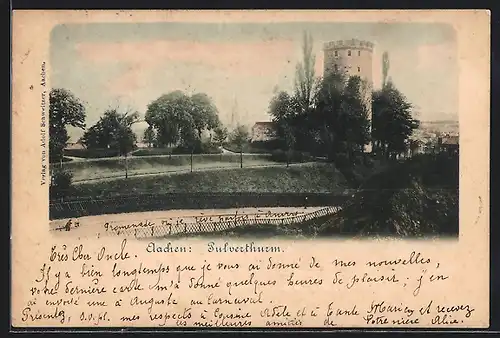 Verlag von Adolf Schweitzer, Aachen.
Promenade où je rêve parfois à
Aachen: Pulverthurm.
Très cher Oncle.
Il y a bien longtemps que je vous ai donné de mes nouvelles,
votre dernière carte m'a donné quelques heures de plaisir, j'en
ai envoyé une à Auguste au Carnaval.
Présentez, s.v.pl. mes respects à Cousine Adèle et à tante et recevez
les meilleures amitiés de Votre nièce Alice.